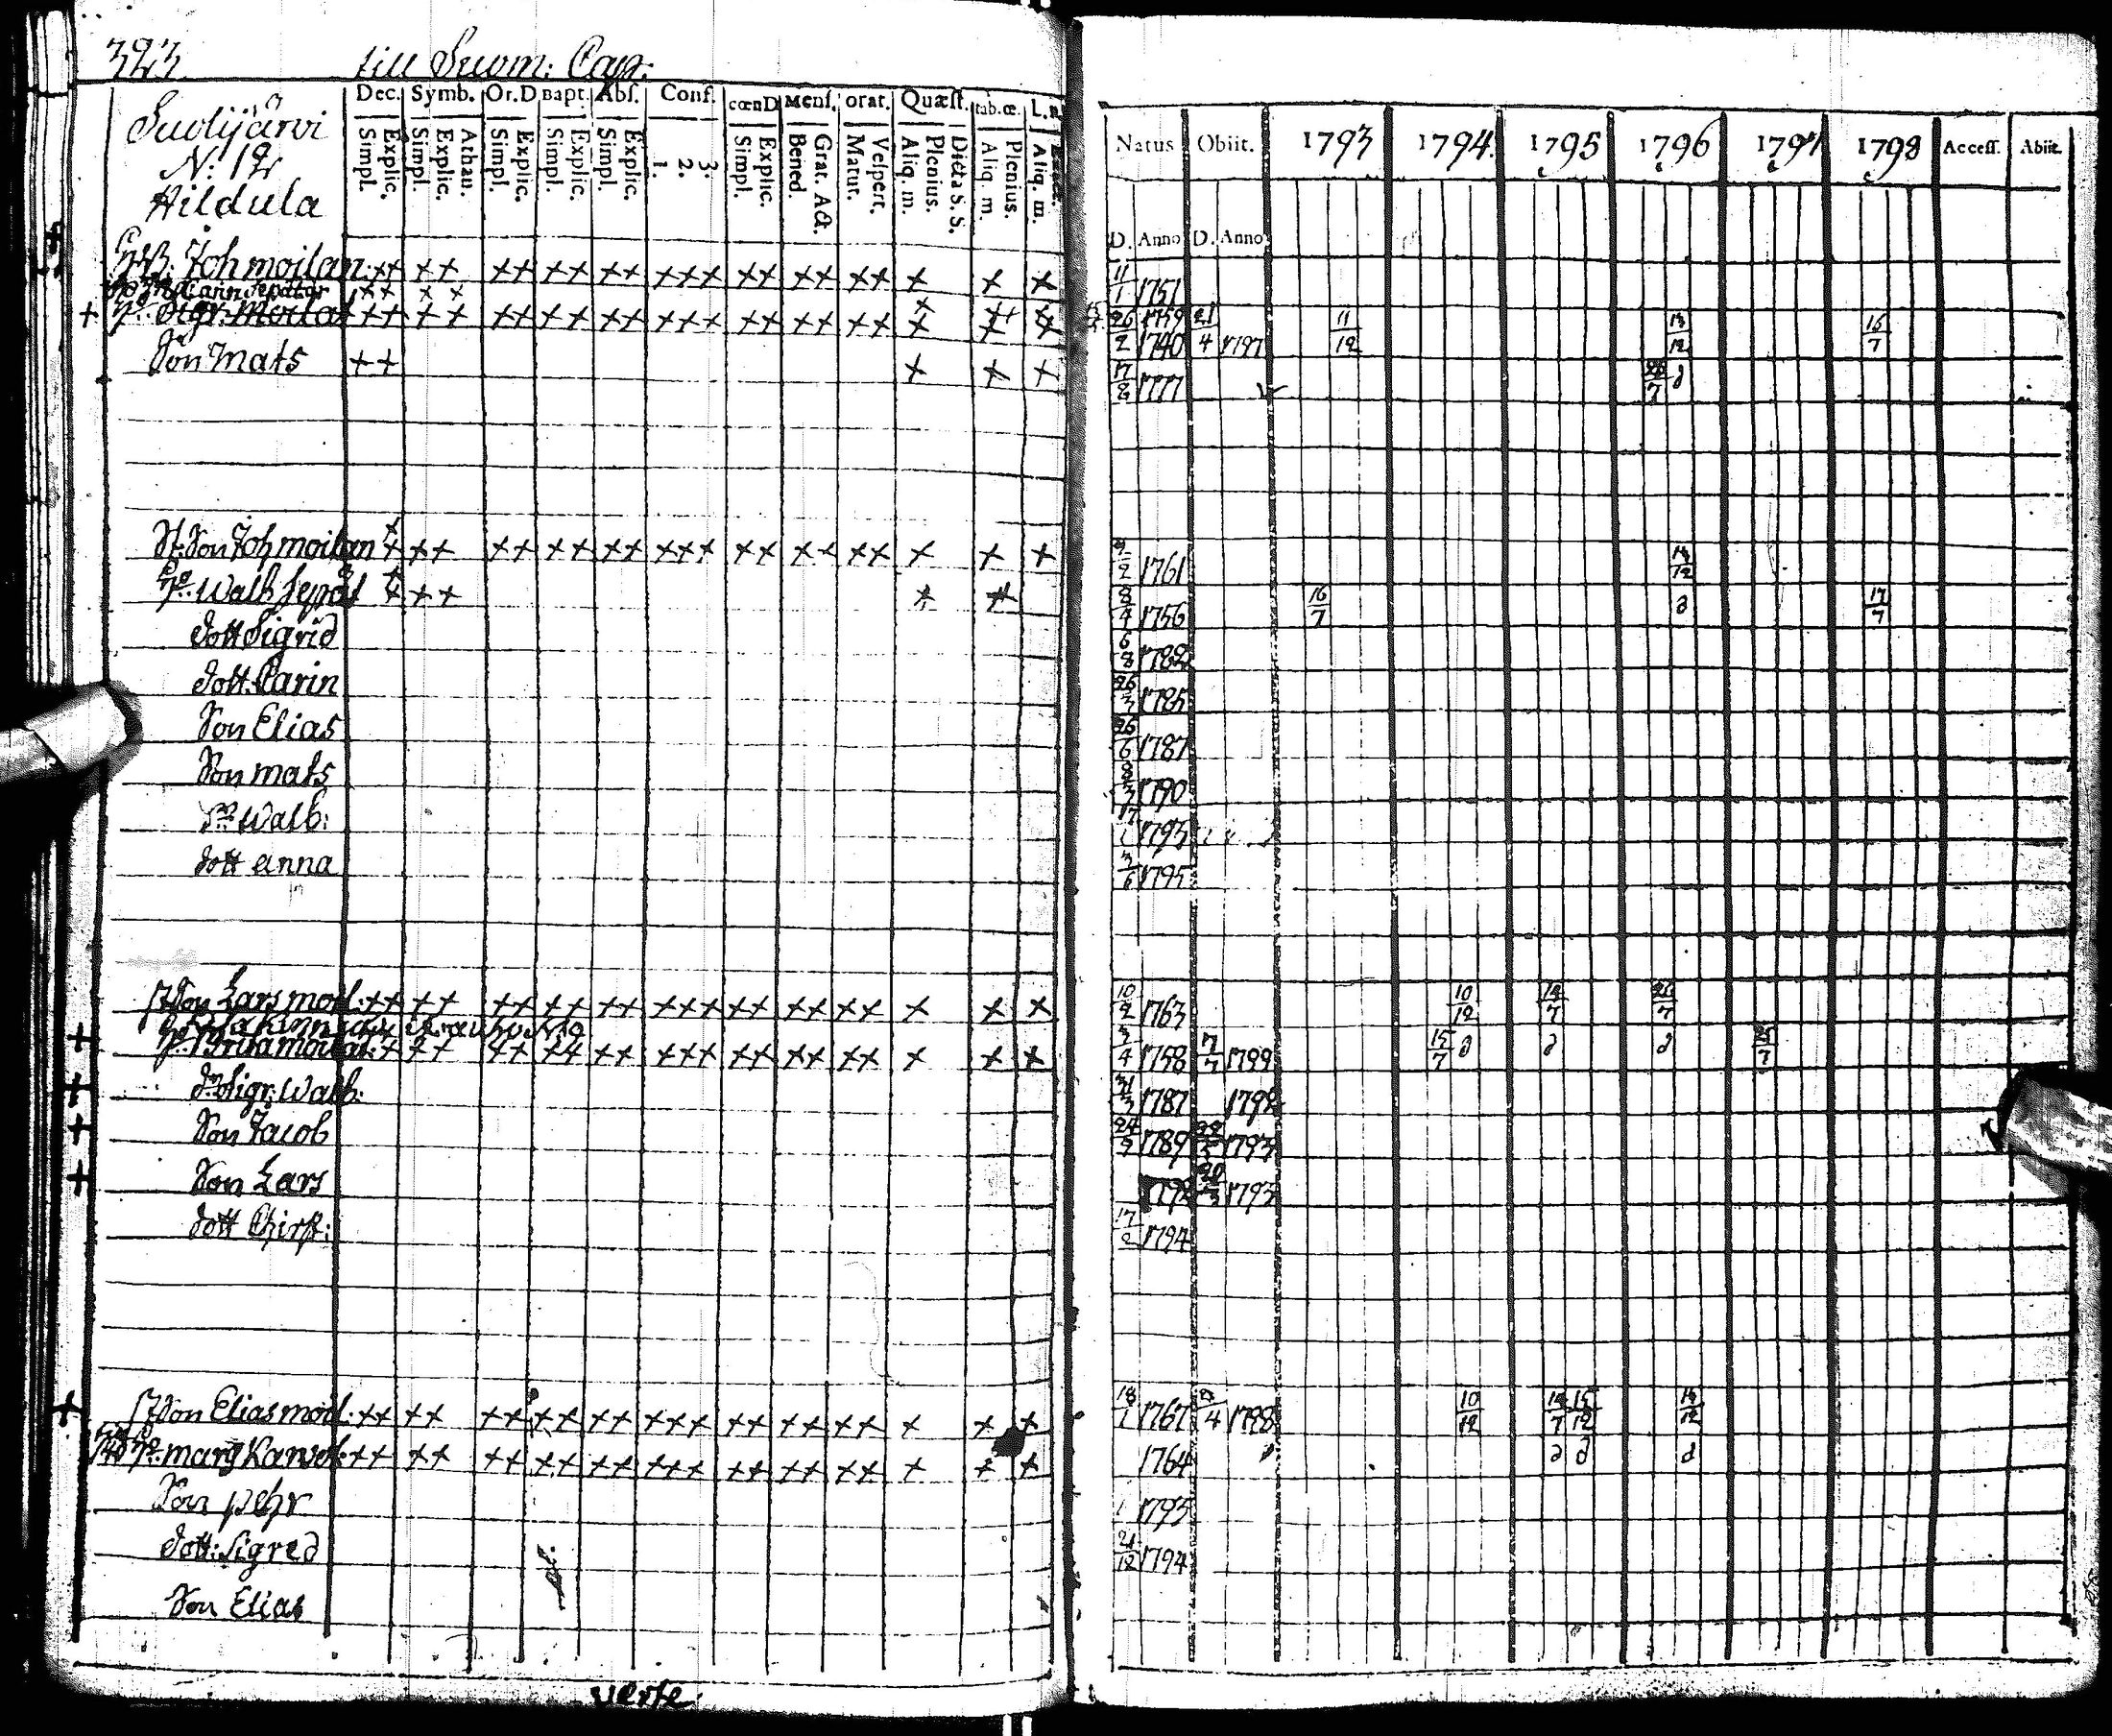 323 till Suom: Cap:
Dec. Symb. Or.D Bapt. Abs. Conf. cœnD Mens. orat. Quæst. tab.œ. L.
Natus Obiit. 1793 1794 1795 1796 1797 1798 Access. Abiit.
Suolijärvi
N: 12
Hildula
Simpl. Explic. Simpl. Explic. Athan. Simpl. Explic. Simpl. Explic. Simpl. Explic. 1. 2. 3. Simpl. Explic. Bened. Grat. Act. Matut. Vespert. Aliq. m. Plenius. Dicta S. S. Aliq. m. Plenius. Aliq. m.
D. Anno D. Anno
Joh moilan: ++ ++ ++ ++ ++ +++ ++ ++ ++ + + + 11/1 1751
++ + + 1759
Sigr: Moilat ++ ++ ++ ++ ++ +++ ++ ++ ++ + + + 26/2 1740 21/4 1797 11/12 13/12 15/7
Son Mats ++ + + + 17/2 1777
Son Joh moilan ++ ++ ++ ++ +++ ++ ++ ++ + + + 1761 13/12
Walb Sepät ++ + + 8/4 1756 16/7 17/7
dott Sigrid 6/8 1782
dott. Carin 26/3 1785
Son Elias 26/6 1787
Son Mats 1790
Walb: 17/1 1793
dott Anna 3/6 1795
Son Lars moil: ++ ++ ++ ++ ++ +++ ++ ++ ++ + + + 10/2 1763 10/12 12/7 26/7
Brita moilat: ++ ++ ++ ++ +++ ++ ++ ++ + + + 3/4 1758 7/7 1799 15/7
Sigr: Walb: 1787 1792
Son Jacob 24/9 1789 1793
Son Lars 1793
dott Chirst: 17/2 1794
Son Elias moil: ++ ++ ++ ++ ++ +++ ++ ++ ++ + + + 18/1 1767 1798 10/12 12/7 15/12 13/12
Marg Karvol: ++ ++ ++ ++ ++ +++ ++ ++ ++ + + + 1764
Son Pehr 1793
dott: Sigred 21/12 1794
Son Elias
verte